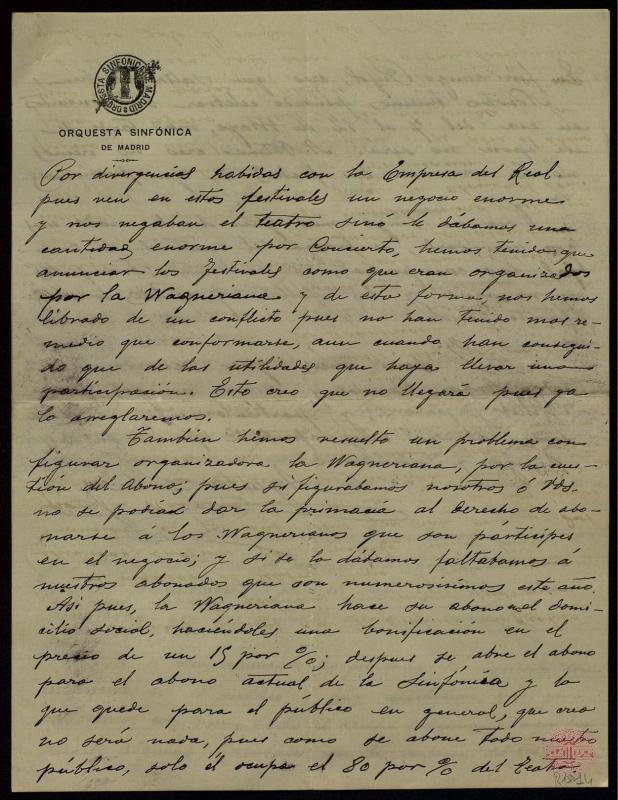 ORQUESTA SINFONICA DE MADRID
ORQUESTA SINFÓNICA
DE MADRID
Por divergencias habidas con la Empresa del Real
pues ven en estos festivales un negocio enorme
y nos negaban el teatro sinó le dábamos una
cantidad enorme por Concierto, hemos tenido que
anunciar los Festivales como que eran organizados
por la Wagneriana y de esta forma, nos hemos
librado de un conflicto pues no han tenido mas re-
medio que conformarse, aun cuando han consegui-
do que de las utilidades que haya llevar una
participación. Esto creo que no llegará pues ya
lo arreglaremos.
Tambien hemos resuelto un problema con
figurar organizadora la Wagneriana, por la cues-
tión del Abono; pues si figurabamos nosotros ó Vds.
no se podían dar la primacia al derecho de abo-
narse á los Wagnerianos que son partícipes
en el negocio; y si se la dábamos faltabamos á
nuestros abonados que son numerosisimos este año.
Asi pues, la Wagneriana hace su abono en el domi-
cilio social, haciéndoles una bonificación en el
precio de un 15 por %; despues se abre el abono
para el abono actual de la Sinfónica y lo
que quede para el público en general, que creo
no será nada, pues como se abone todo nuestro
público, solo él ocupa el 80 por % del Teatro.